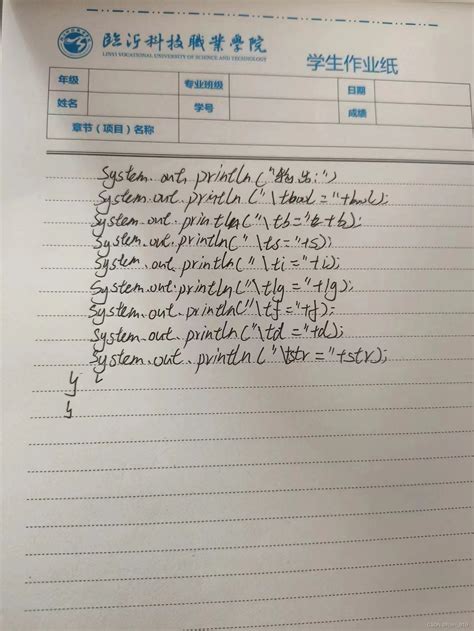 临沂科技职业学院
LINYI VOCATIONAL UNIVERSITY OF SCIENCE AND TECHNOLOGY
学生作业纸
年级 专业班级 日期
姓名 学号 成绩
章节（项目）名称
System.out.println("输出:")
System.out.println("\tbool="+bool);
System.out.println("\tb="+b);
System.out.println("\ts="+s);
System.out.println("\ti="+i);
System.out.println("\tlg="+lg);
System.out.println("\tf="+f);
System.out.println("\td="+d);
System.out.println("\tstr="+str);
}
}